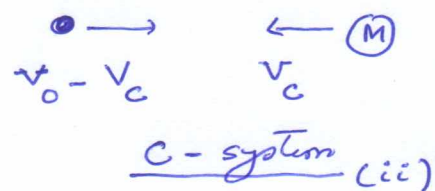 M
v₀ - V_C V_C
C - system (ii)